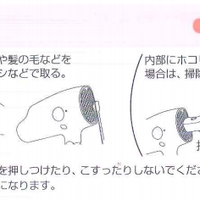 や髪の毛などを
シなどで取る。
内部にホコ
場合は、掃除
を押しつけたり、こすったりしないでくださ
になります。